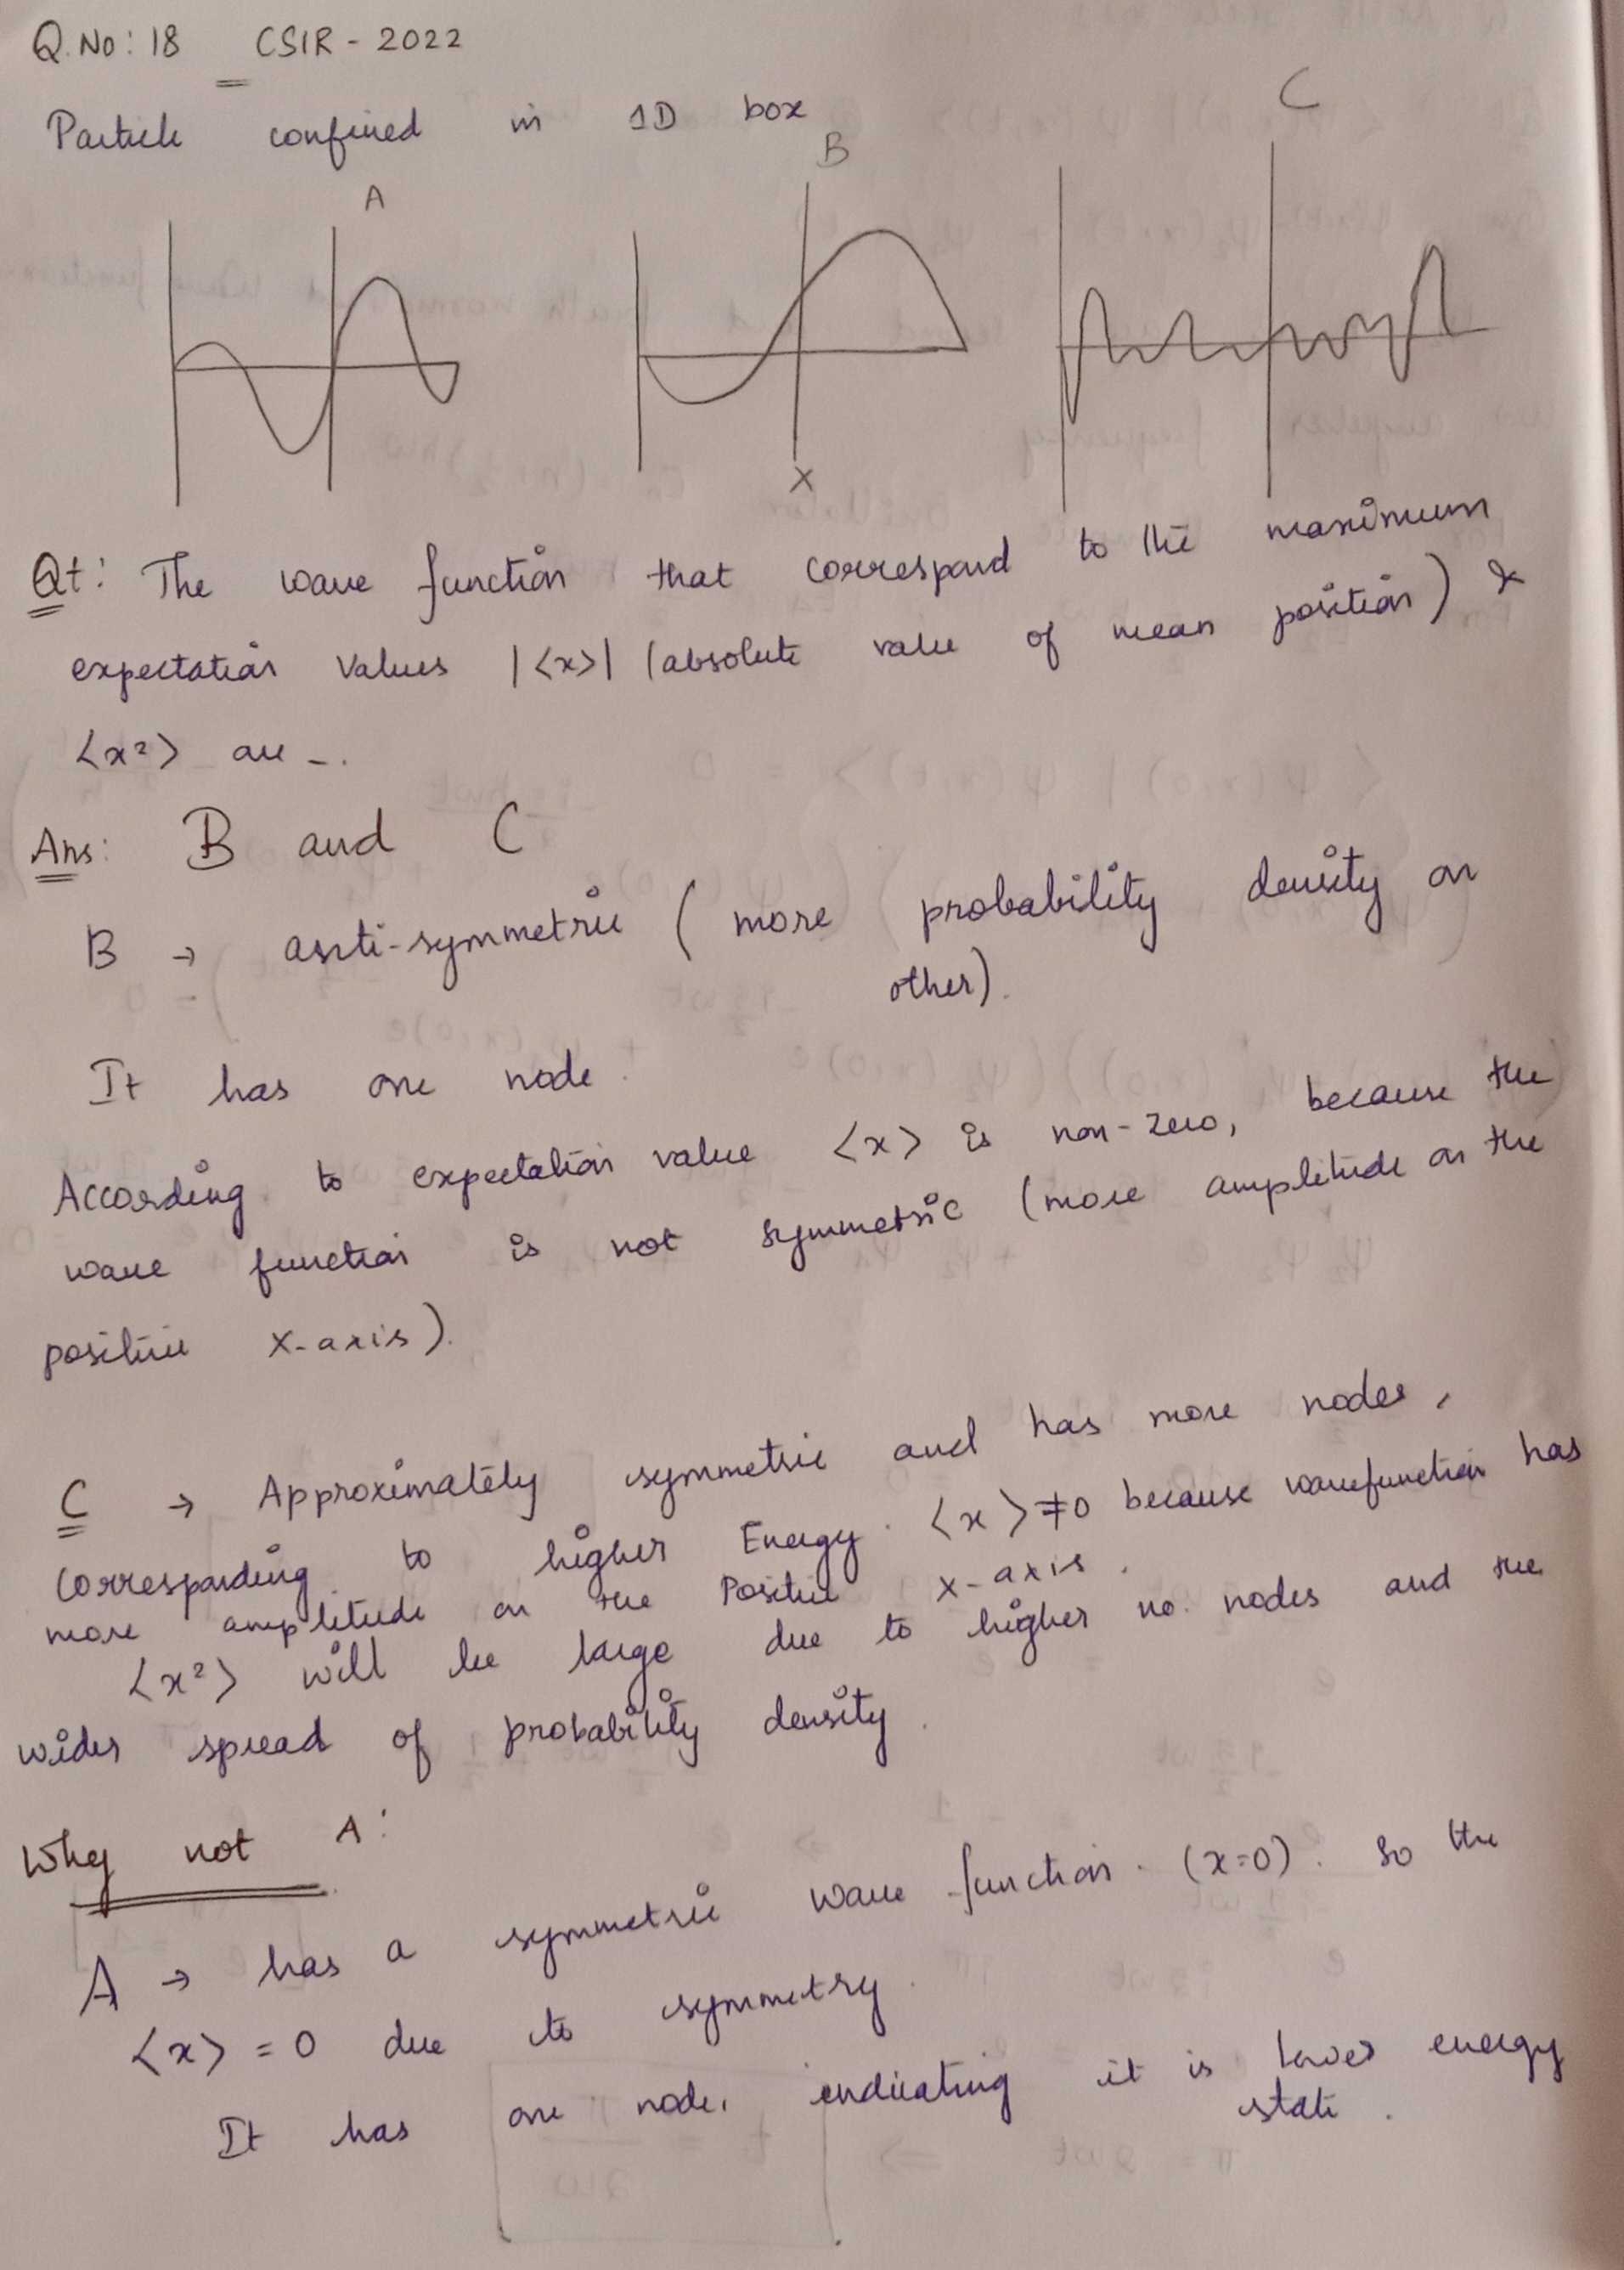 Q.No: 18 CSIR - 2022
Particle confined in 1D box
A
B
C
X
Qt: The wave function that correspond to the maximum
expectation values |<x>| (absolute value of mean position) &
<x²> are -.
Ans: B and C
B → anti-symmetric (more probability density on
other).
It has one node.
According to expectation value <x> is non-zero, because the
wave function is not symmetric (more amplitude on the
positive X-axis).
C → Approximately symmetric and has more nodes,
corresponding to higher Energy. <x> ≠ 0 because wavefunction has
more amplitude on the Positive x-axis.
<x²> will be large due to higher no. nodes and the
wider spread of probability density.
Why not A:
A → has a symmetric wave function. (x=0). So the
<x> = 0 due to symmetry.
It has one node, indicating it is lower energy
state.